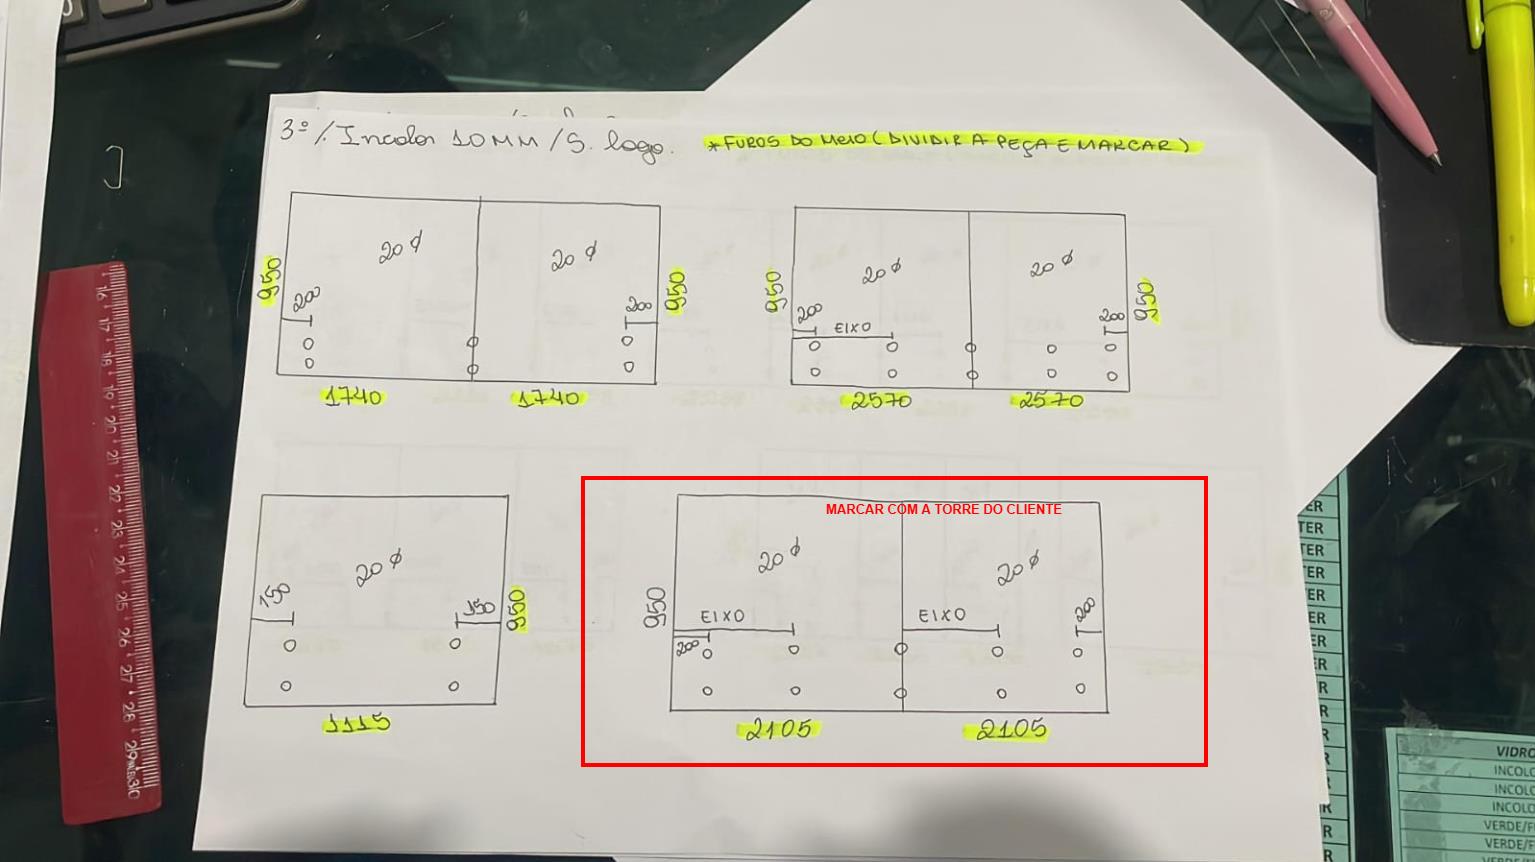 3º/. Incolor 10MM / S. logo.
*FUROS DO MEIO (DIVIDIR A PEÇA E MARCAR)
20 ϕ
20 ϕ
950
200
200
950
1740
1740
20 ϕ
20 ϕ
950
200
EIXO
200
950
2570
2570
20 ϕ
150
150
950
1115
MARCAR COM A TORRE DO CLIENTE
20 ϕ
20 ϕ
950
EIXO
EIXO
200
200
2105
2105
16 17 18 19 20 21 22 23 24 25 26 27 28 29 30
ER
TER
ER
TER
ER
ER
ER
ER
R
R
R
ER
R
R
R
VIDRO
INCOLO
INCOLO
INCOLO
VERDE/F
VERDE/F